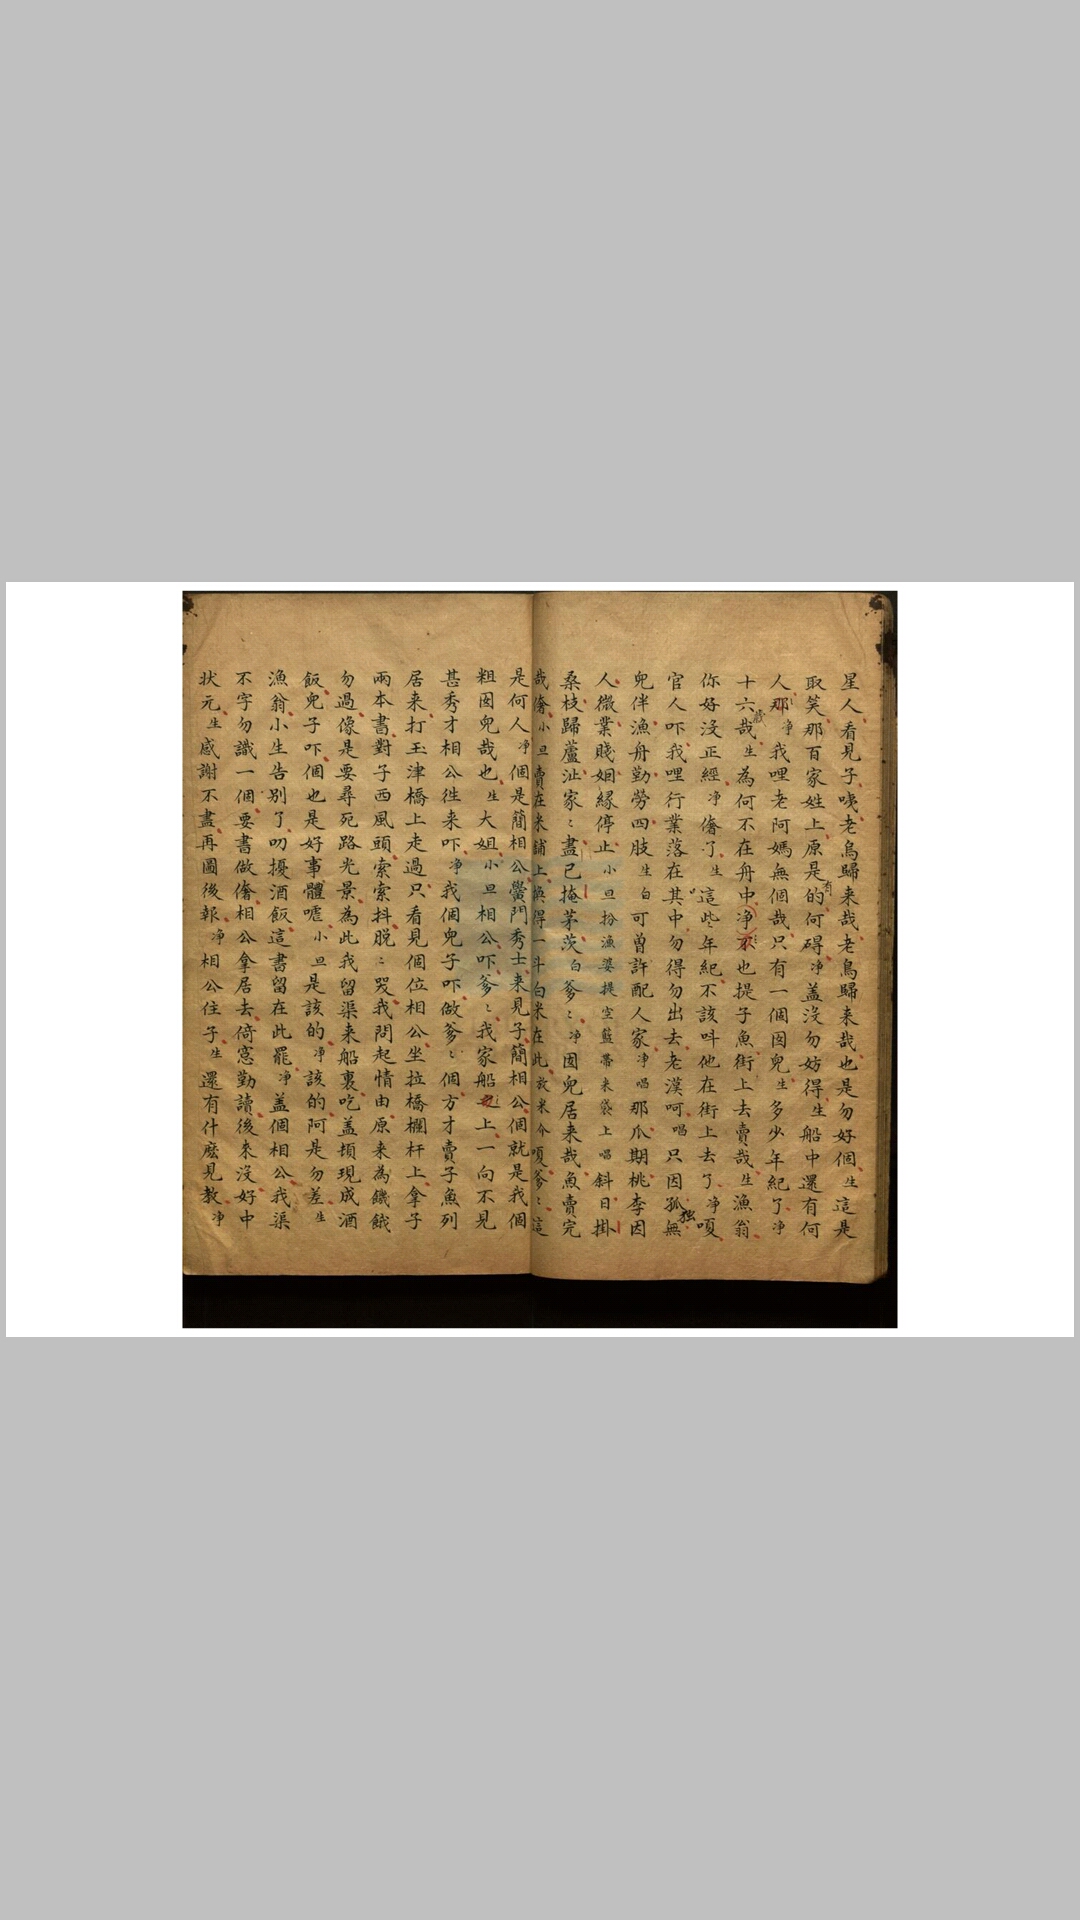 星人看見子咦老鳥歸来哉老鳥歸来哉也是勿好個生這是
取笑那百家姓上原是有的何碍净盖沒勿妨得生船中還有何
人那净我哩老阿媽無個哉只有一個囡兒生多少年紀了净
十六歲哉生為何不在舟中净不也提子魚街上去賣哉生漁翁
你好沒正經净儋了生這些年紀不該呌他在街上去了净嗄
官人吓我哩行業落在其中勿得勿出去老漢呵唱只因孤独無
兒伴漁舟勤勞四肢生白可曽許配人家净唱那爪期桃李因
人微業賤姻緣停止小旦扮漁婆提空籃帶米袋上唱斜日掛
桑枝歸蘆沚家〻盡已掩茅茨白爹〻净囡兒居来哉魚賣完
哉儋小旦賣在米鋪上換得一斗白米在此放米介嗄爹〻這
是何人净個是簡相公黌門秀士来見子簡相公個就是我個
粗囡兒哉也生大姐小旦相公吓爹〻我家船上一向不見
甚秀才相公徃来吓净我個兒子吓做爹〻個方才賣子魚列
居来打玉津橋上走過只看見個位相公坐拉橋欄杆上拿子
兩本書對子西風頭索索抖脱〻哭我問起情由原来為饑餓
勿過像是要尋死路光景為此我留渠来船裏吃盖頓現成酒
飯兒子吓個也是好事體嚛小旦是該的净該的阿是勿差生
漁翁小生告别了叨擾酒飯這書留在此罷净盖個相公我渠
不字勿識一個要書做儋相公拿居去倚窓勤讀後來沒好中
状元生感謝不盡再圖後報净相公住子生還有什麽見教净